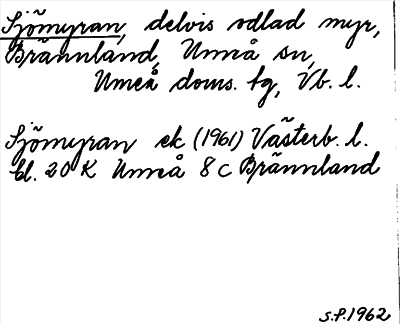 Sjömyran, delvis odlad myr,
Brännland, Umeå sn,
Umeå doms. tg, Vb. l.
Sjömyran ek (1961) Västerb. l.
bl. 20 K Umeå 8 c Brännland
S.P. 1962